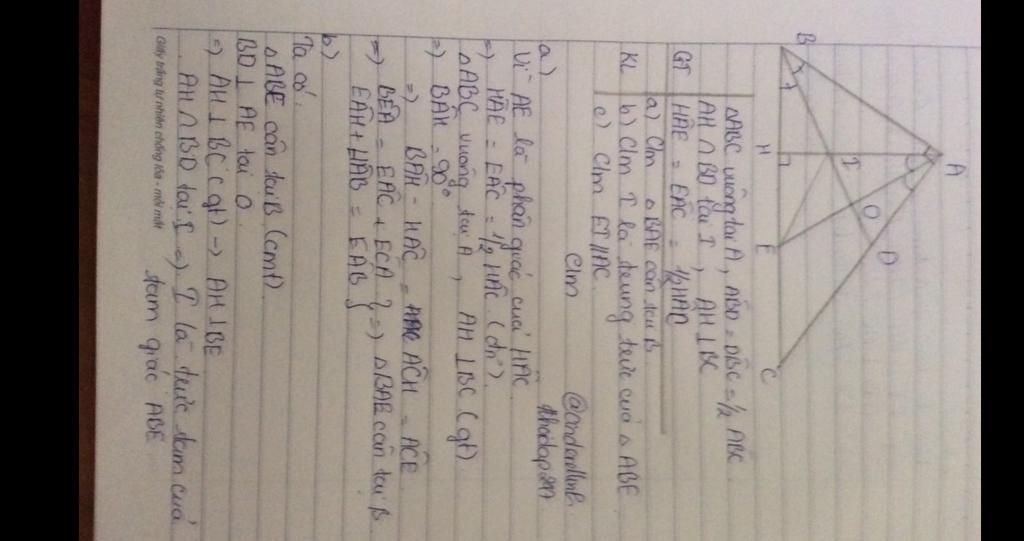 A
B
H
I
O
D
E
C
GT
ΔABC vuông tại A, AB̂D = DB̂C = 1/2 ABC
AH ∩ BD tại I, AH ⊥ BC
HÂE = EÂC = 1/2 HÂC
KL
a) Clm Δ BAE cân tại B.
b) Clm I là trung trực của Δ ABE
c) Clm EI // AC.
Clm
a)
Vì AE là phân giác của HÂC
=) HÂE = EÂC = 1/2 HÂC (đn).
ΔABC vuông tại A, AH ⊥ BC (gt).
=) BÂH = 90°
=) BÂH - HÂC = AĈH = AĈE
=) BÊA = EÂC + EĈA } =) ΔBAE cân tại B
EÂH + HÂB = EÂB }
b)
Ta có:
ΔABE cân tại B (cmt)
BD ⊥ AE tại O
=) AH ⊥ BC (gt) -) AH ⊥ BE
AH ∩ BD tại I =) I là trực tâm của
tam giác ABE
Giấy trắng tự nhiên chống lóa - mỏi mắt